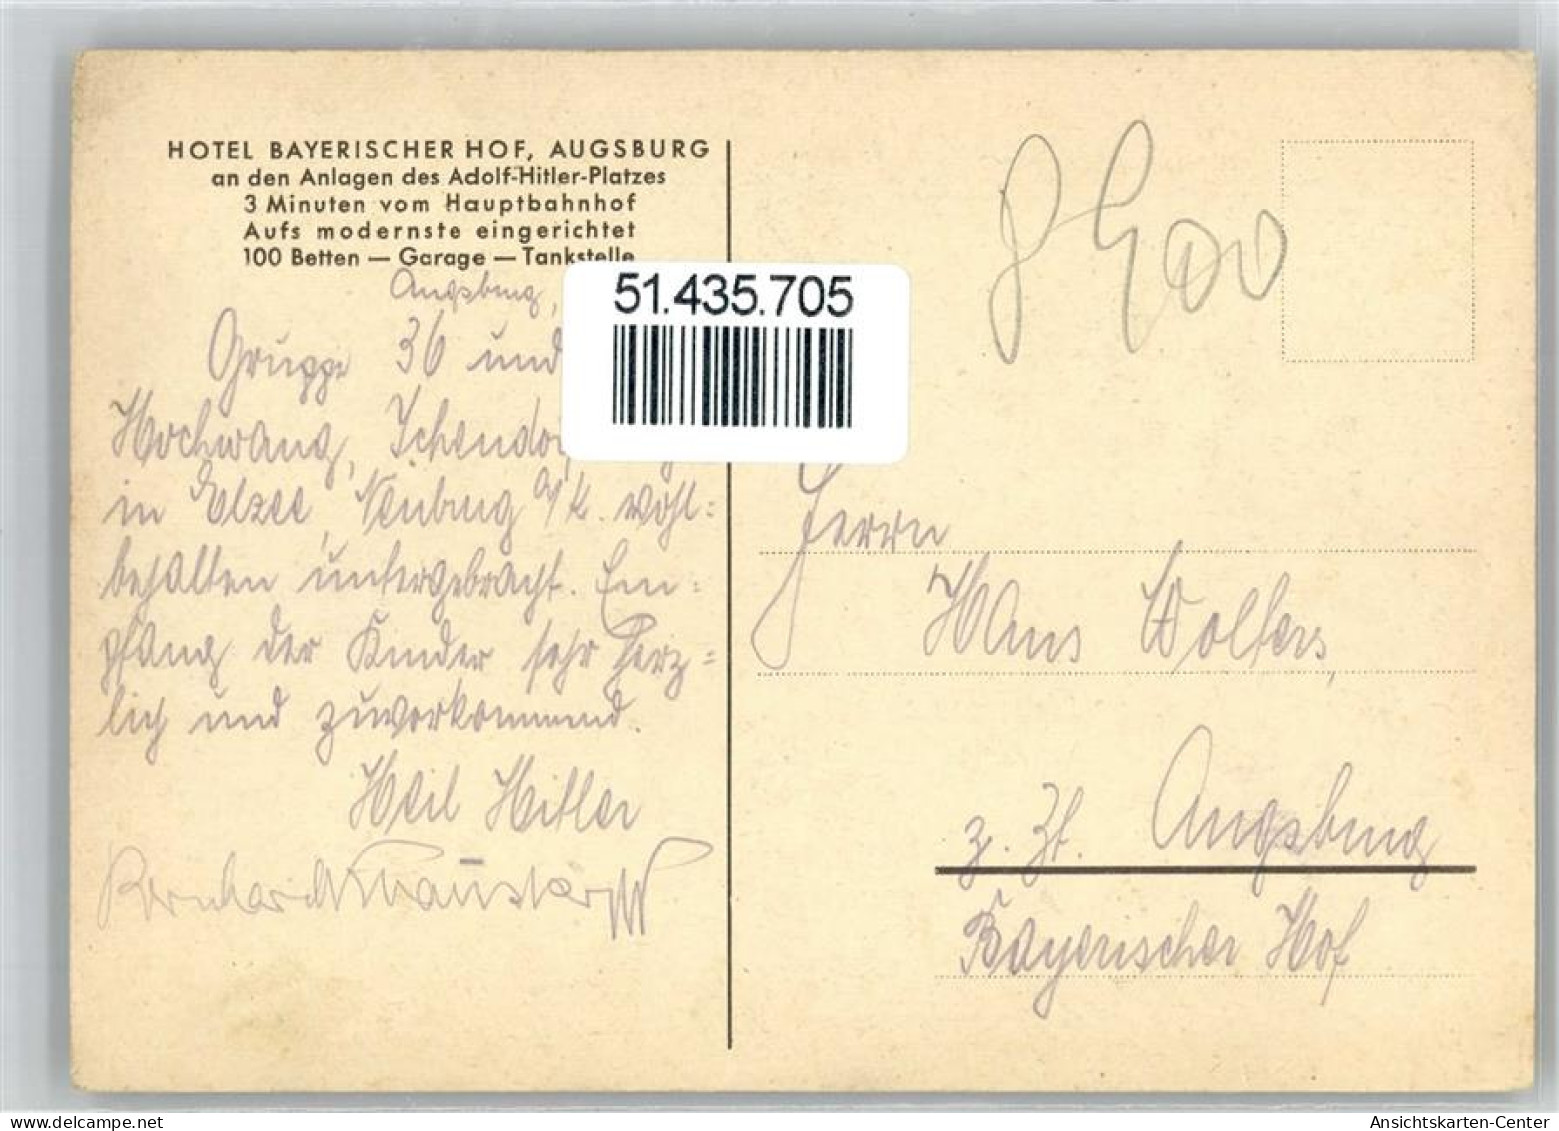 HOTEL BAYERISCHER HOF, AUGSBURG
an den Anlagen des Adolf-Hitler-Platzes
3 Minuten vom Hauptbahnhof
Aufs modernste eingerichtet
100 Betten — Garage — Tankstelle
Augsburg,
Gruppe 36 und
Hochwang, Ichendo
in Elzee, Neuburg a/K. wohl=
behalten untergebracht. Em=
pfang der Kinder sehr herz=
lich und zuvorkommend.
Heil Hitler
Bernhard
51.435.705
Herrn
Hans Wolters,
z. Zt. Augsburg
Bayerischer Hof
Ansichtskarten-Center